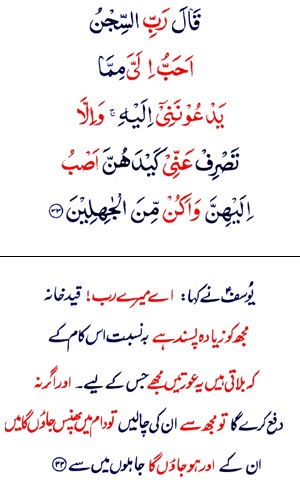 قَالَ رَبِّ السِّجْنُ
اَحَبُّ اِلَیَّ مِمَّا
یَدْعُوْنَنِیْۤ اِلَیْهِ ۚ وَاِلَّا
تَصْرِفْ عَنِّیْ کَیْدَهُنَّ اَصْبُ
اِلَیْهِنَّ وَاَکُنْ مِّنَ الْجٰهِلِیْنَ ﴿۳۳﴾
یُوسفؑ نے کہا: اے میرے رب! قید خانہ
مجھ کو زیادہ پسند ہے بہ نسبت اس کام کے
کہ بلاتی ہیں یہ عورتیں مجھے جس کے لیے۔ اور اگر نہ
دفع کرے گا تو مجھ سے ان کی چالیں تو دام میں پھنس جاؤں گا میں
ان کے اور ہو جاؤں گا جاہلوں میں سے ﴿۳۳﴾